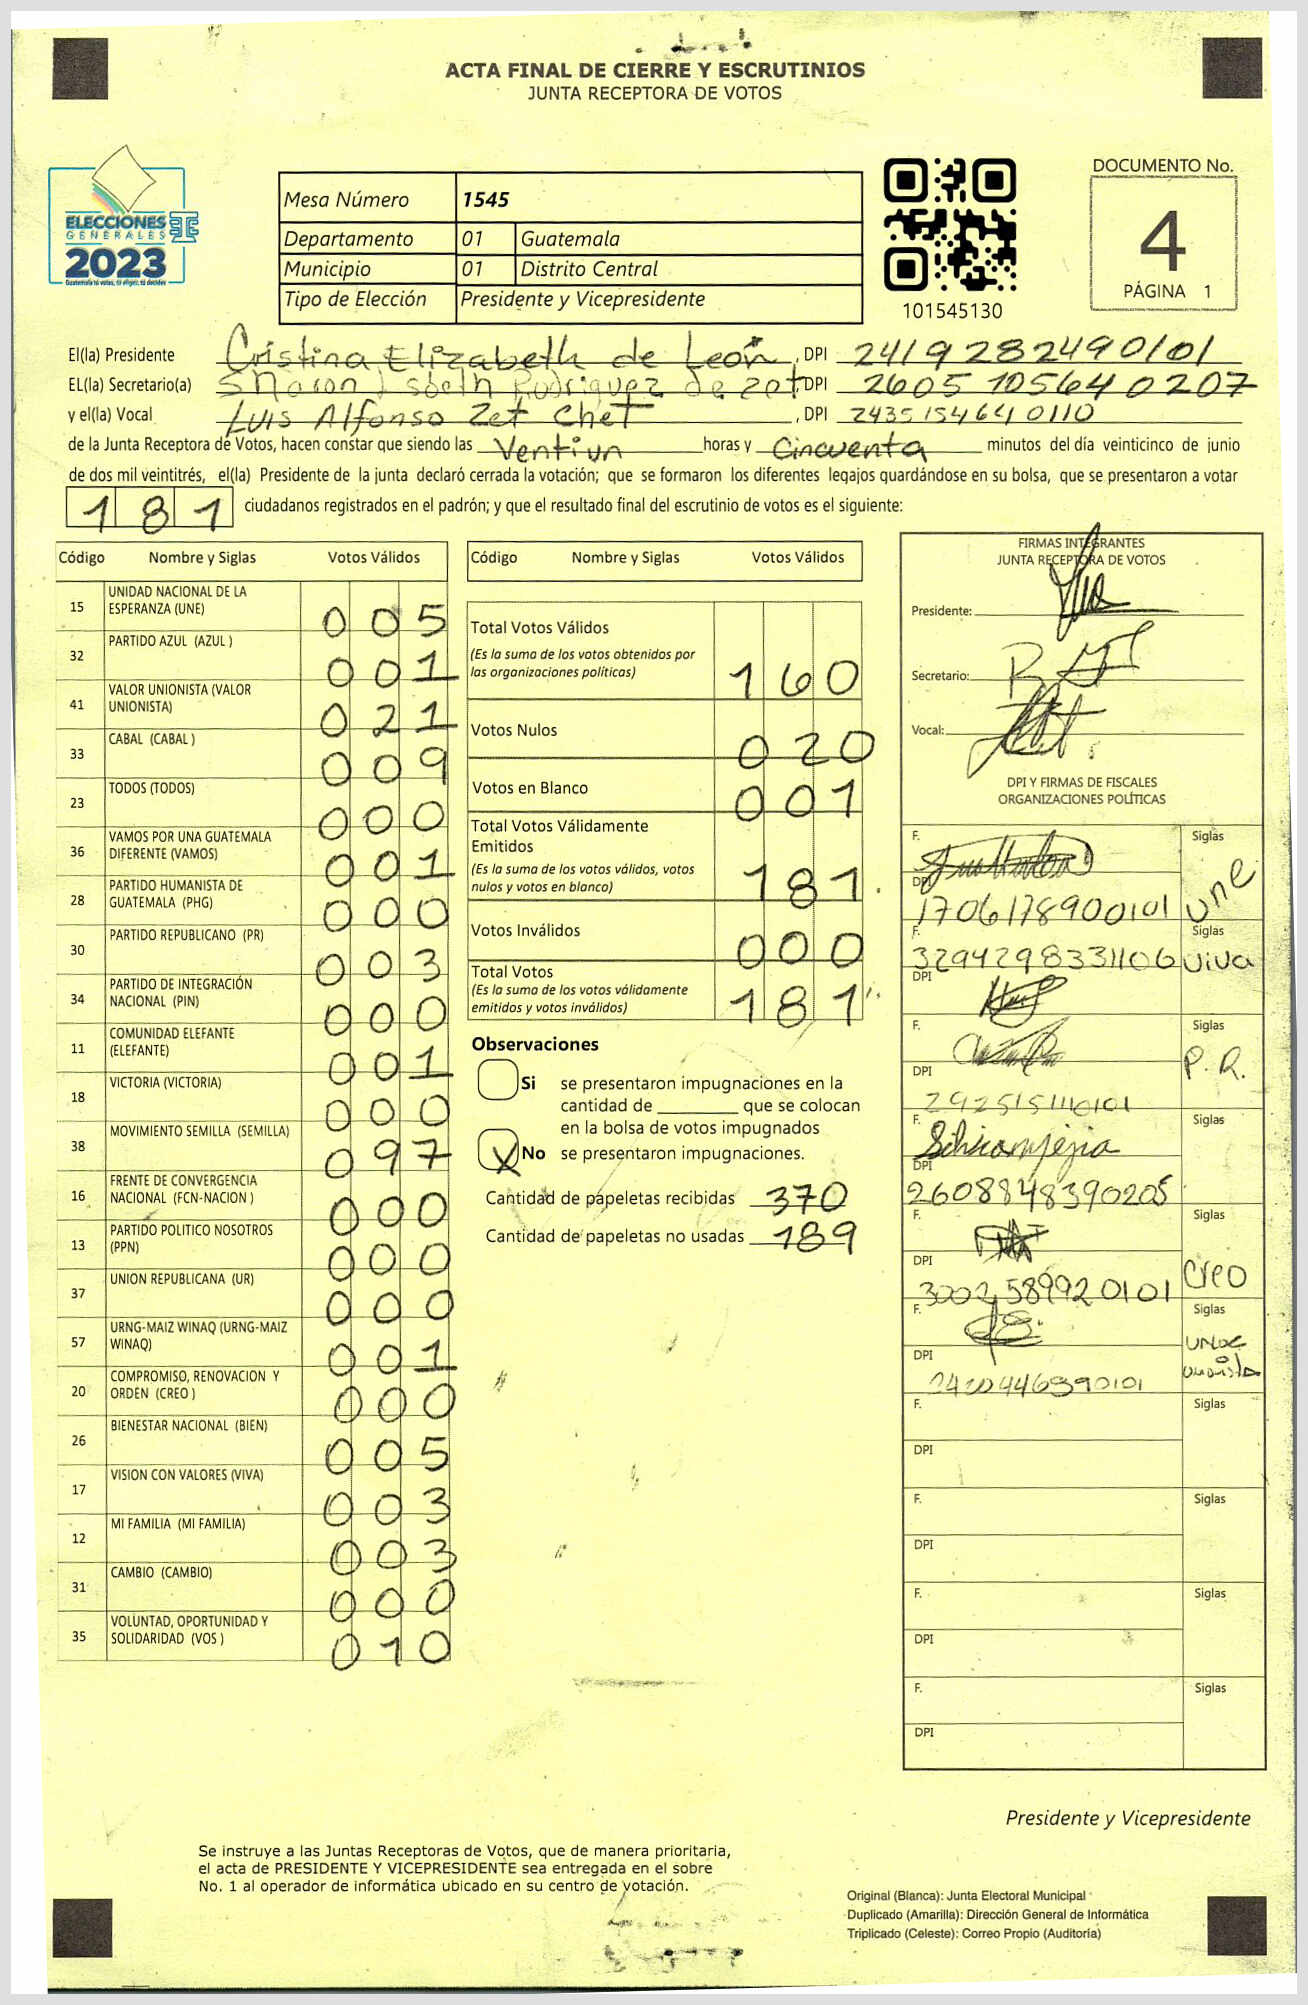 ACTA FINAL DE CIERRE Y ESCRUTINIOS
JUNTA RECEPTORA DE VOTOS
ELECCIONES
GENERALES
2023
Guatemala tú votas, tú eliges, tú decides
Mesa Número 1545
Departamento 01 Guatemala
Municipio 01 Distrito Central
Tipo de Elección Presidente y Vicepresidente
101545130
DOCUMENTO No.
4
PÁGINA 1
El(la) Presidente Cristina Elizabeth de León, DPI 2419282490101
EL(la) Secretario(a) Sharon Lisbeth Rodriguez de Zet, DPI 2605 10564 0207
y el(la) Vocal Luis Alfonso Zet Chet, DPI 2435154640110
de la Junta Receptora de Votos, hacen constar que siendo las Ventiun horas y Cincuenta minutos del día veinticinco de junio
de dos mil veintitrés, el(la) Presidente de la junta declaró cerrada la votación; que se formaron los diferentes legajos quardándose en su bolsa, que se presentaron a votar
181 ciudadanos registrados en el padrón; y que el resultado final del escrutinio de votos es el siguiente:
Código Nombre y Siglas Votos Válidos
15 UNIDAD NACIONAL DE LA ESPERANZA (UNE) 005
32 PARTIDO AZUL (AZUL ) 001
41 VALOR UNIONISTA (VALOR UNIONISTA) 021
33 CABAL (CABAL ) 009
23 TODOS (TODOS) 000
36 VAMOS POR UNA GUATEMALA DIFERENTE (VAMOS) 001
28 PARTIDO HUMANISTA DE GUATEMALA (PHG) 000
30 PARTIDO REPUBLICANO (PR) 003
34 PARTIDO DE INTEGRACIÓN NACIONAL (PIN) 000
11 COMUNIDAD ELEFANTE (ELEFANTE) 001
18 VICTORIA (VICTORIA) 000
38 MOVIMIENTO SEMILLA (SEMILLA) 097
16 FRENTE DE CONVERGENCIA NACIONAL (FCN-NACION ) 000
13 PARTIDO POLITICO NOSOTROS (PPN) 000
37 UNION REPUBLICANA (UR) 000
57 URNG-MAIZ WINAQ (URNG-MAIZ WINAQ) 001
20 COMPROMISO, RENOVACION Y ORDEN (CREO ) 000
26 BIENESTAR NACIONAL (BIEN) 005
17 VISION CON VALORES (VIVA) 003
12 MI FAMILIA (MI FAMILIA) 003
31 CAMBIO (CAMBIO) 000
35 VOLUNTAD, OPORTUNIDAD Y SOLIDARIDAD (VOS ) 010
Código Nombre y Siglas Votos Válidos
Total Votos Válidos 160
(Es la suma de los votos obtenidos por
las organizaciones políticas)
Votos Nulos 020
Votos en Blanco 001
Total Votos Válidamente
Emitidos 181
(Es la suma de los votos válidos, votos
nulos y votos en blanco)
Votos Inválidos 000
Total Votos 181
(Es la suma de los votos válidamente
emitidos y votos inválidos)
Observaciones
Si se presentaron impugnaciones en la
cantidad de que se colocan
en la bolsa de votos impugnados
X No se presentaron impugnaciones.
Cantidad de papeletas recibidas 370
Cantidad de papeletas no usadas 189
FIRMAS INTEGRANTES
JUNTA RECEPTORA DE VOTOS
Presidente:
Secretario:
Vocal:
DPI Y FIRMAS DE FISCALES
ORGANIZACIONES POLÍTICAS
F. Siglas
DPI 1706178900101 une
F. Siglas
3294298331106 viva
DPI
F. Siglas
DPI P.R.
2925151110101
F. Siglas
DPI
2608848390205
F. Siglas
DPI Creo
3002589920101
F. Siglas
DPI
F. Siglas
DPI
F. Siglas
DPI
F. Siglas
DPI
F. Siglas
DPI
Presidente y Vicepresidente
Se instruye a las Juntas Receptoras de Votos, que de manera prioritaria,
el acta de PRESIDENTE Y VICEPRESIDENTE sea entregada en el sobre
No. 1 al operador de informática ubicado en su centro de votación.
Original (Blanca): Junta Electoral Municipal
Duplicado (Amarilla): Dirección General de Informática
Triplicado (Celeste): Correo Propio (Auditoría)